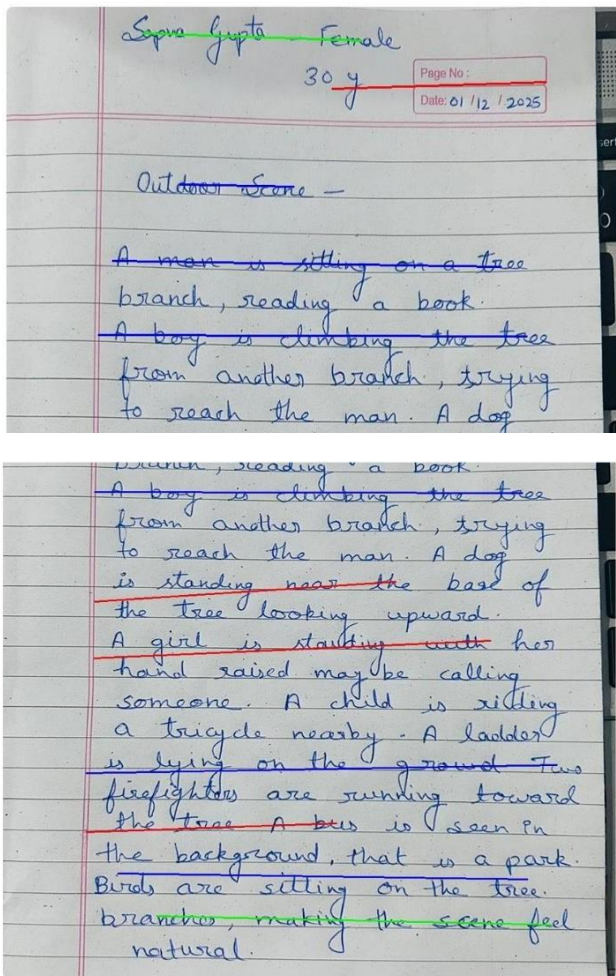 Sapna Gupta - Female
30 y
Page No :
Date: 01 / 12 / 2025
Outdoor Scene -
A man is sitting on a tree
branch, reading a book.
A boy is climbing the tree
from another branch, trying
to reach the man. A dog
branch, reading a book.
A boy is climbing the tree
from another branch, trying
to reach the man. A dog
is standing near the base of
the tree looking upward.
A girl is standing with her
hand raised may be calling
someone. A child is riding
a tricycle nearby. A ladder
is lying on the ground Two
firefighters are running toward
the tree A bus is seen in
the background, that is a park.
Birds are sitting on the tree.
branches, making the scene feel
natural.